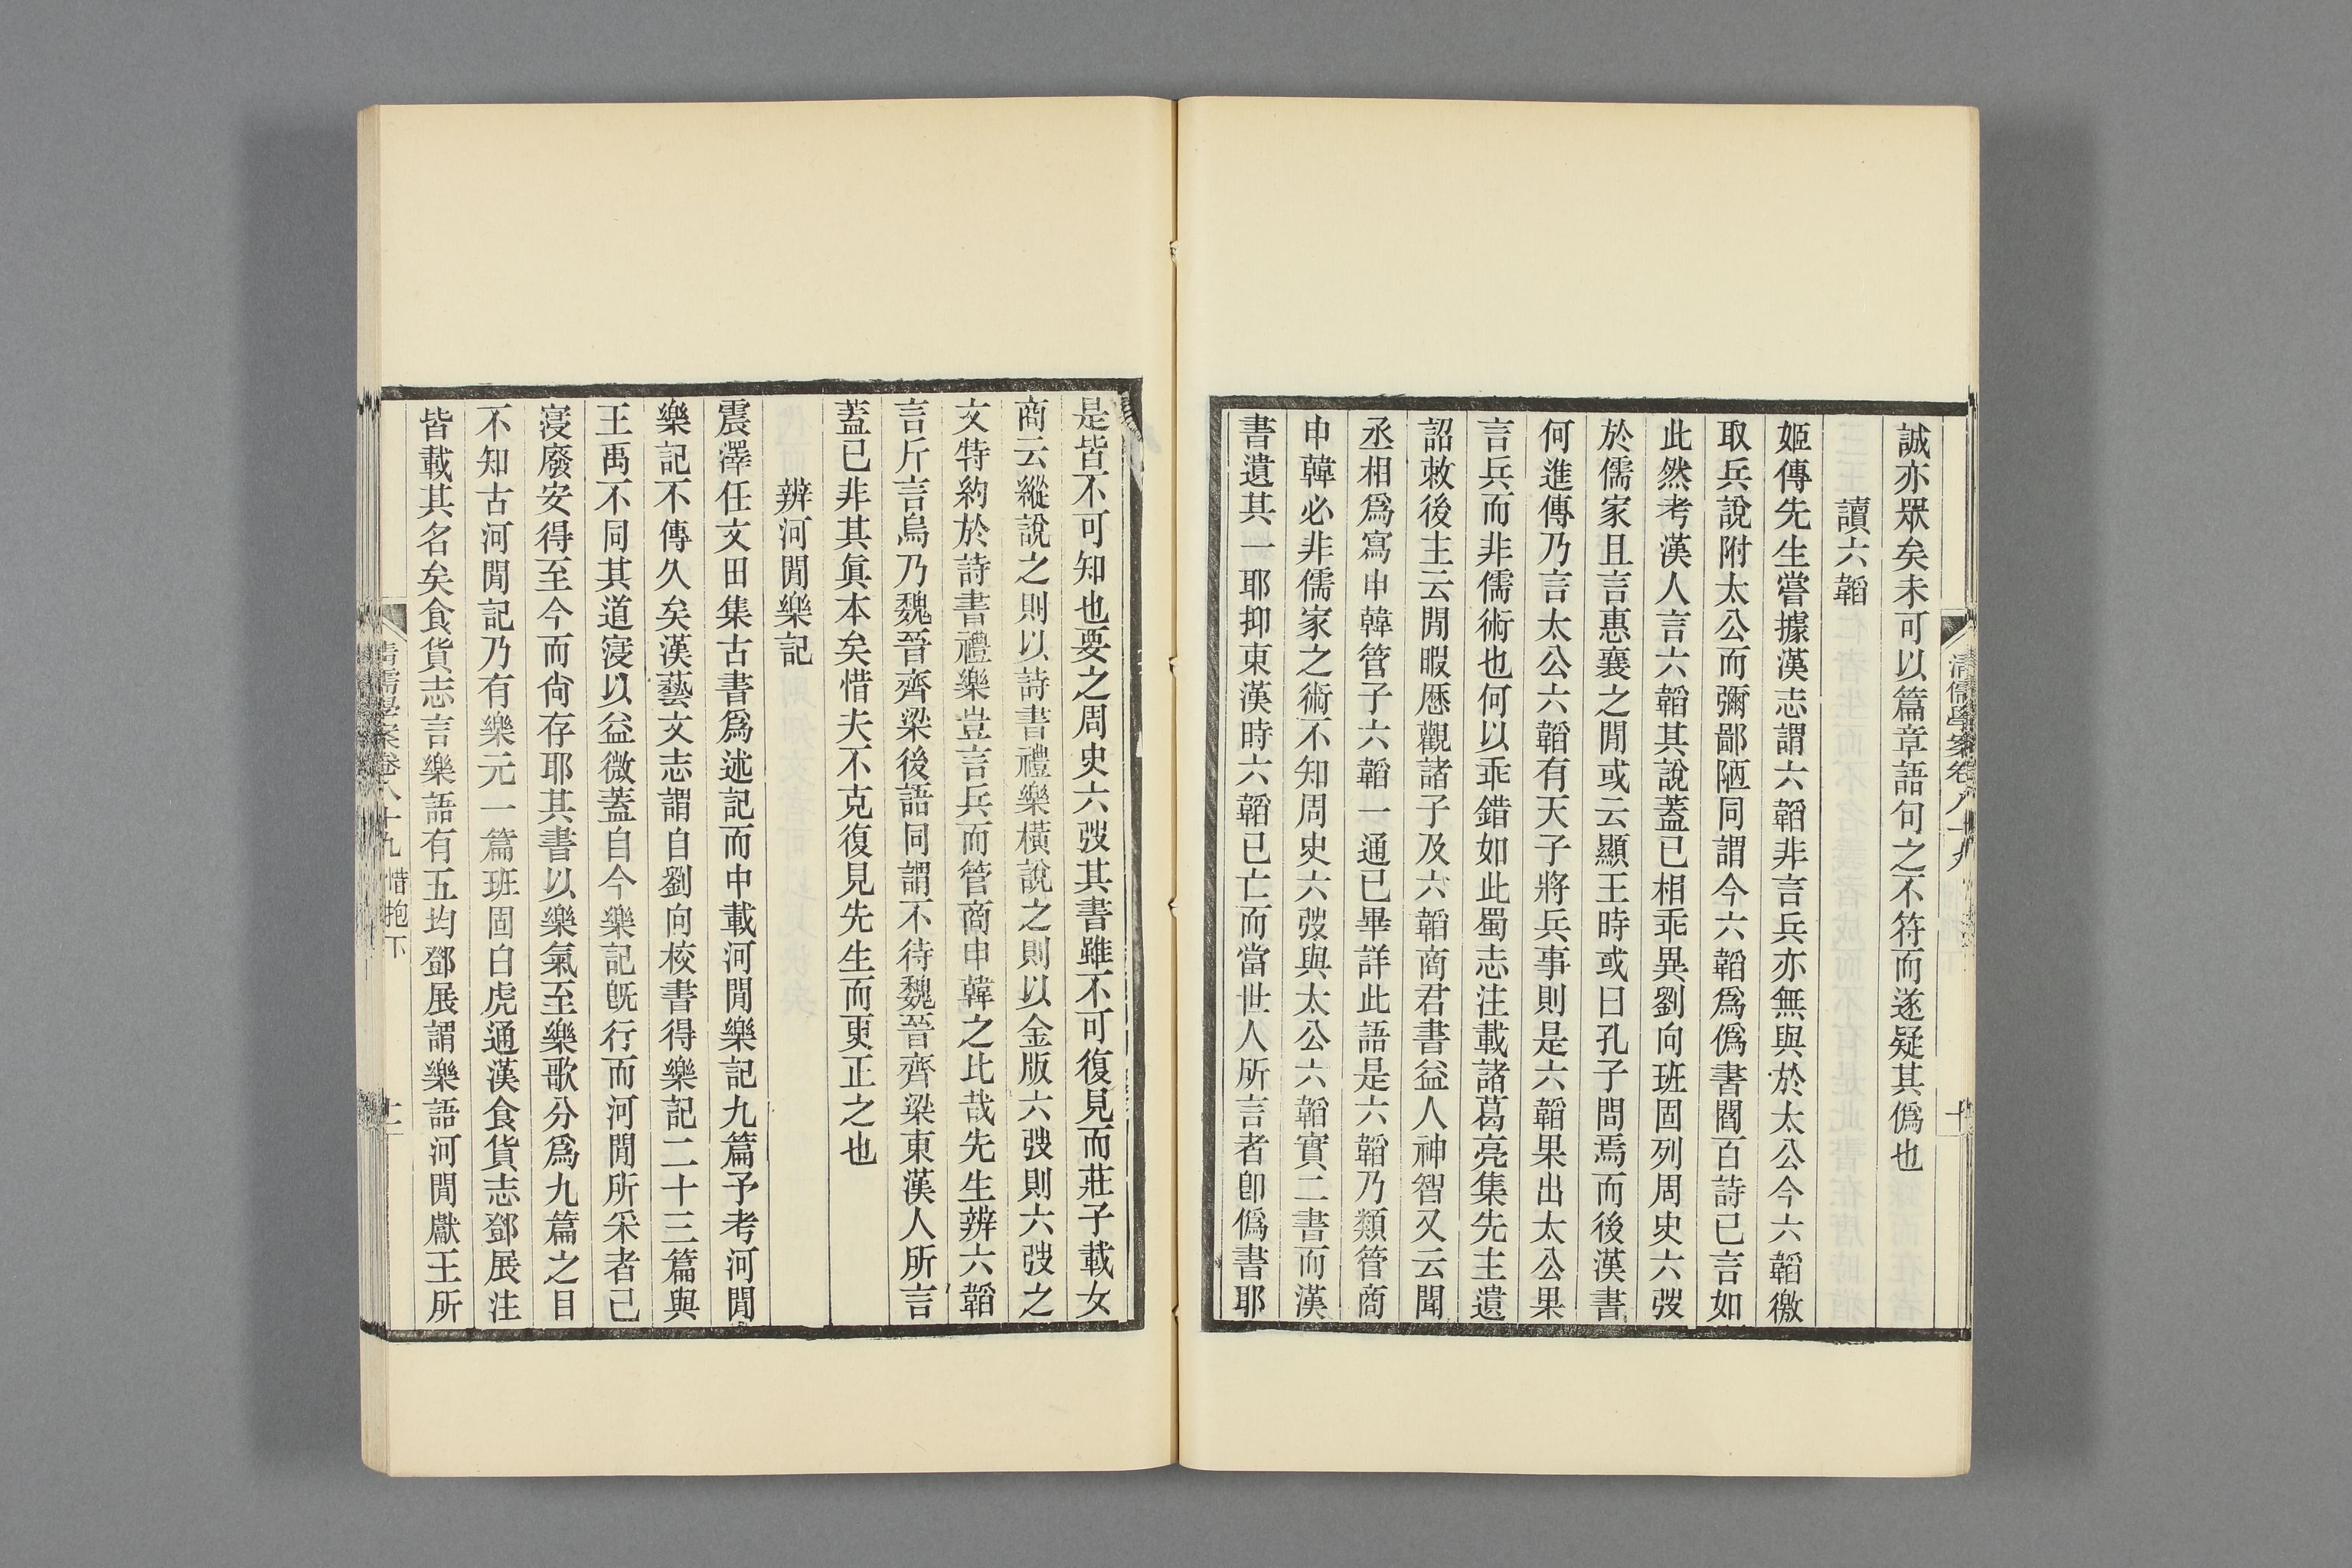 清儒學案卷八十九
十
誠亦眾矣未可以篇章語句之不符而遂疑其僞也
讀六韜
姬傳先生嘗據漢志謂六韜非言兵亦無與於太公今六韜徼
取兵說附太公而彌鄙陋同謂今六韜爲僞書閻百詩已言如
此然考漢人言六韜其說蓋已相乖異劉向班固列周史六弢
於儒家且言惠襄之閒或云顯王時或曰孔子問焉而後漢書
何進傳乃言太公六韜有天子將兵事則是六韜果出太公果
言兵而非儒術也何以乖錯如此蜀志注載諸葛亮集先主遺
詔敕後主云閒暇歷觀諸子及六韜商君書益人神智又云聞
丞相爲寫申韓管子六韜一通已畢詳此語是六韜乃類管商
申韓必非儒家之術不知周史六弢與太公六韜實二書而漢
書遺其一耶抑東漢時六韜已亡而當世人所言者卽僞書耶
是皆不可知也要之周史六弢其書雖不可復見而莊子載女
商云縱說之則以詩書禮樂橫說之則以金版六弢則六弢之
文特約於詩書禮樂豈言兵而管商申韓之比哉先生辨六韜
言斤言烏乃魏晉齊梁後語同謂不待魏晉齊梁東漢人所言
蓋已非其眞本矣惜夫不克復見先生而更正之也
辨河閒樂記
震澤任文田集古書爲述記而中載河閒樂記九篇予考河閒
樂記不傳久矣漢藝文志謂自劉向校書得樂記二十三篇與
王禹不同其道寖以益微蓋自今樂記旣行而河閒所采者已
寖廢安得至今而尙存耶其書以樂氣至樂歌分爲九篇之目
不知古河閒記乃有樂元一篇班固白虎通漢食貨志鄧展注
皆載其名矣食貨志言樂語有五均鄧展謂樂語河閒獻王所
清儒學案卷八十九 惜抱下
十一